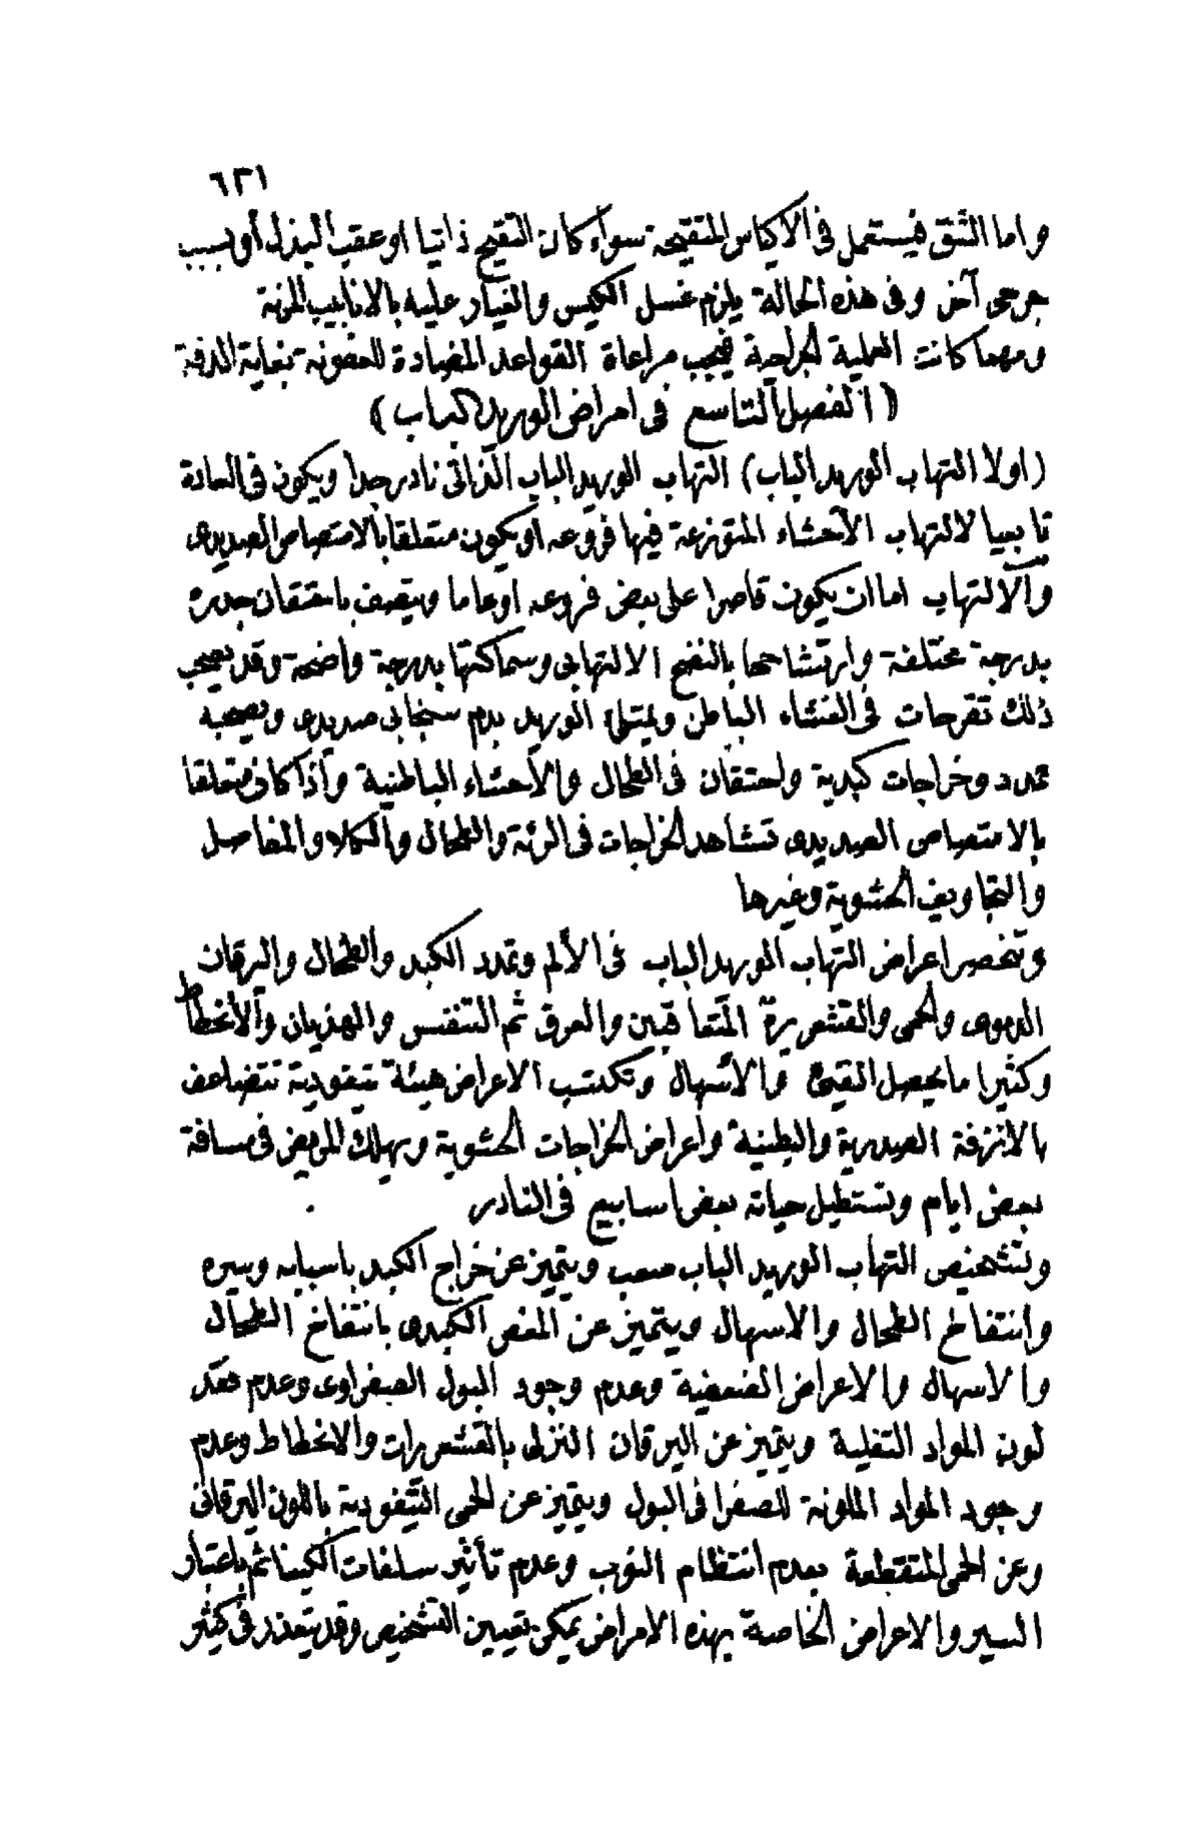 ٦٣١
واما الشق فيستعمل فى الاكياس المتقيحة سواء كان التقيح ذاتيا او عقب البذل أو بسبب
جرحى آخر وفى هذه الحالة يلزم غسل الكيس والغيار عليه بالانابيب المرنة
ومهما كانت العملية الجراحية فيجب مراعاة القواعد المضادة للعفونة بغاية الدقة
(الفصل التاسع فى امراض الوريد الباب)
(اولا التهاب الوريد الباب) التهاب الوريد الباب الذاتى نادر جدا ويكون فى العادة
تابعيا لالتهاب الأحشاء المتوزعة فيها فروعه او يكون متعلقا بالامتصاص الصديدى
والالتهاب اما ان يكون قاصرا على بعض فروعه او عاما ويتصف باحتقان جدره
بدرجة مختلفة وارتشاحها بالنضح الالتهابى وسماكتها بدرجة واضحة وقد يصحب
ذلك تقرحات فى الغشاء الباطن ويمتلئ الوريد بدم سنجابى صديدى ويصحبه
تمدد وخراجات كبدية واحتقان فى الطحال والأحشاء الباطنية واذا كان متعلقا
بالامتصاص الصديدى تشاهد الخراجات فى الرئة والطحال والكلا والمفاصل
والتجاويف الحشوية وغيرها
وتنحصر اعراض التهاب الوريد الباب فى الألم وتمدد الكبد والطحال واليرقان
الدموى والحمى والقشعريرة المتعاقبين والعرق ثم التنفس والهذيان والأنحطاط
وكثيرا ما يحصل القيئ والأسهال وتكتسب الاعراض هيئة تيفودية تتضاعف
بالانزفة الصدرية والبطنية واعراض الخراجات الحشوية ويهلك المريض فى مسافة
بعض ايام وتستطيل حياته بعض اسابيع فى النادر
وتشخيص التهاب الوريد الباب صعب ويتميز عن خراج الكبد باسبابه وسيره
وانتفاخ الطحال والاسهال ويتميز عن المغص الكبدى بانتفاخ الطحال
والاسهال والاعراض الضعفية وعدم وجود البول الصفراوى وعدم فقد
لون المواد الثفلية ويتميز عن اليرقان النزلى بالقشعريرات والانحطاط وعدم
وجود المواد الملونة للصفرا فى البول ويتميز عن الحمى التيفودية باللون اليرقانى
وعن الحمى المتقطعة بعدم انتظام النوب وعدم تأثير سلفات الكينا ثم باعتبار
السير والاعراض الخاصة بهذه الامراض يمكن تعيين التشخيص وقد يتعذر فى كثير